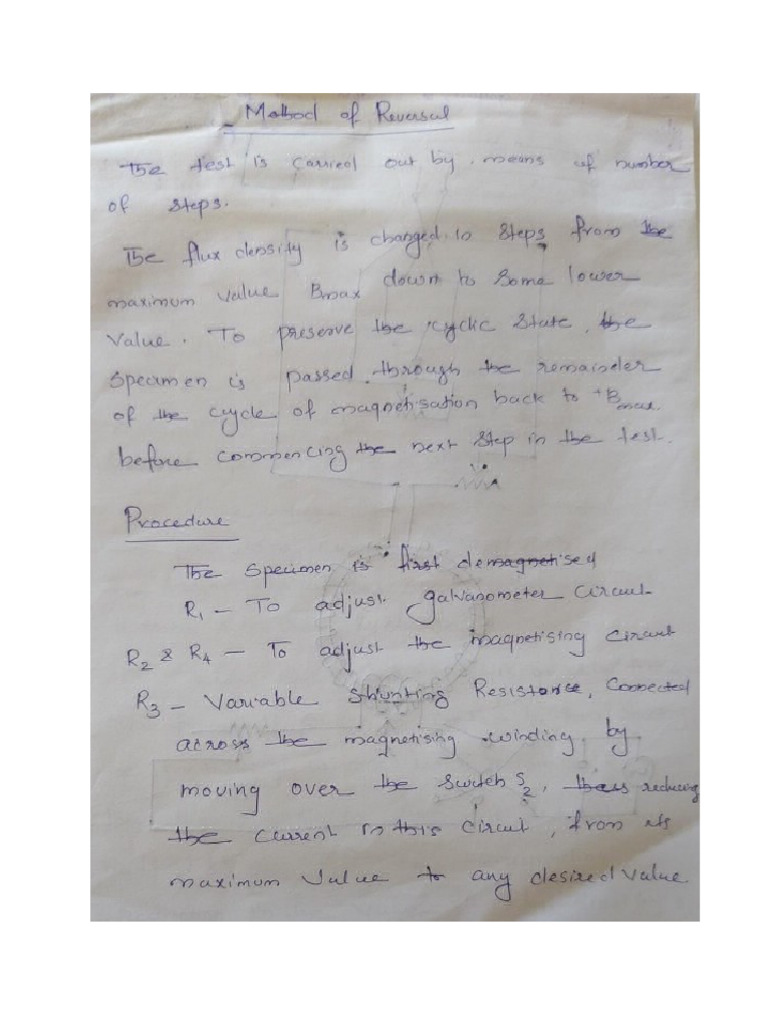 Method of Reversal
The test is carried out by means of number
of steps.
The flux density is changed in steps from the
maximum value Bmax down to some lower
value. To preserve the cyclic state, the
specimen is passed through the remainder
of the cycle of magnetisation back to +Bmax
before commencing the next step in the test.
Procedure
The specimen is first demagnetised
R1 - To adjust galvanometer circuit
R2 & R4 - To adjust the magnetising circuit
R3 - Variable shunting Resistance, Connected
across the magnetising winding by
moving over the switch S2, thus reducing
the current in this circuit, from its
maximum value to any desired value